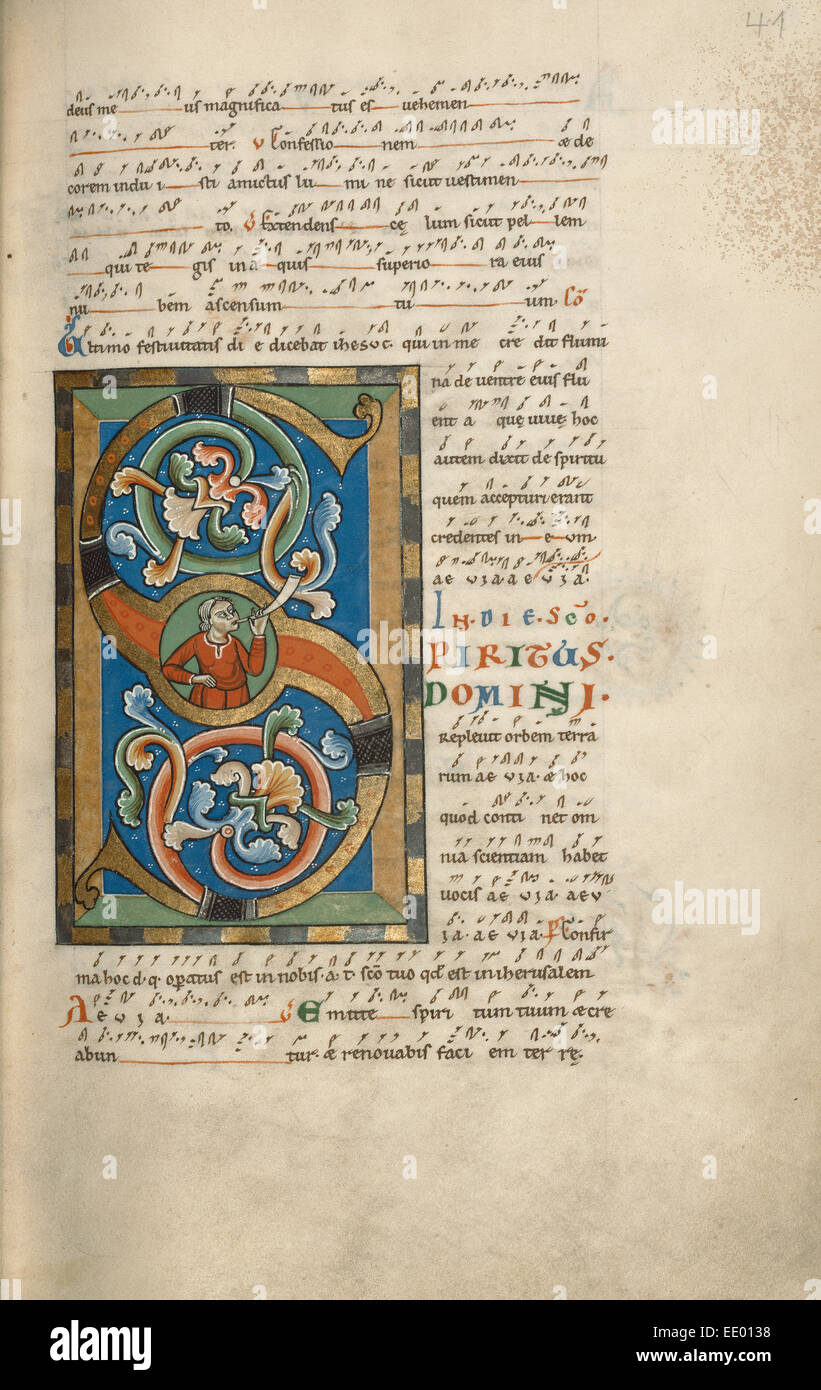 41
deus me us magnifica tus es vehemen
ter. V Confessio nem & de
corem indu i sti amictus lu mi ne sicut vestimen
to. V Extendens cę lum sicut pel lem
qui te gis in a quis superio ra eius
nu bem ascensum tu um. Cō
Ultimo festivitatis di e dicebat ihesuc. qui in me cre dit flumi
na de ventre eius flu
ent a que vivę hoc
autem dixit de spiritu
quem accepturi erant
credentes in e um
ae v i a. a e v i a.
IN. DIE. SCŌ.
PIRITUS.
DOMINI.
Replevit orbem terra
rum ae v i a. & hoc
quod conti net om
nia scientiam habet
vocis ae v i a. ae v
i a. ae v i a. P Confir
ma hoc d. q. operatus est in nobis. a. t. scō tuo qd est in iherusalem
A e v i a. V Emitte spiri tum tuum & cre
abun tur. & renovabis faci em ter rę.
alamy
alamy stock photo
EE0138
www.alamy.com